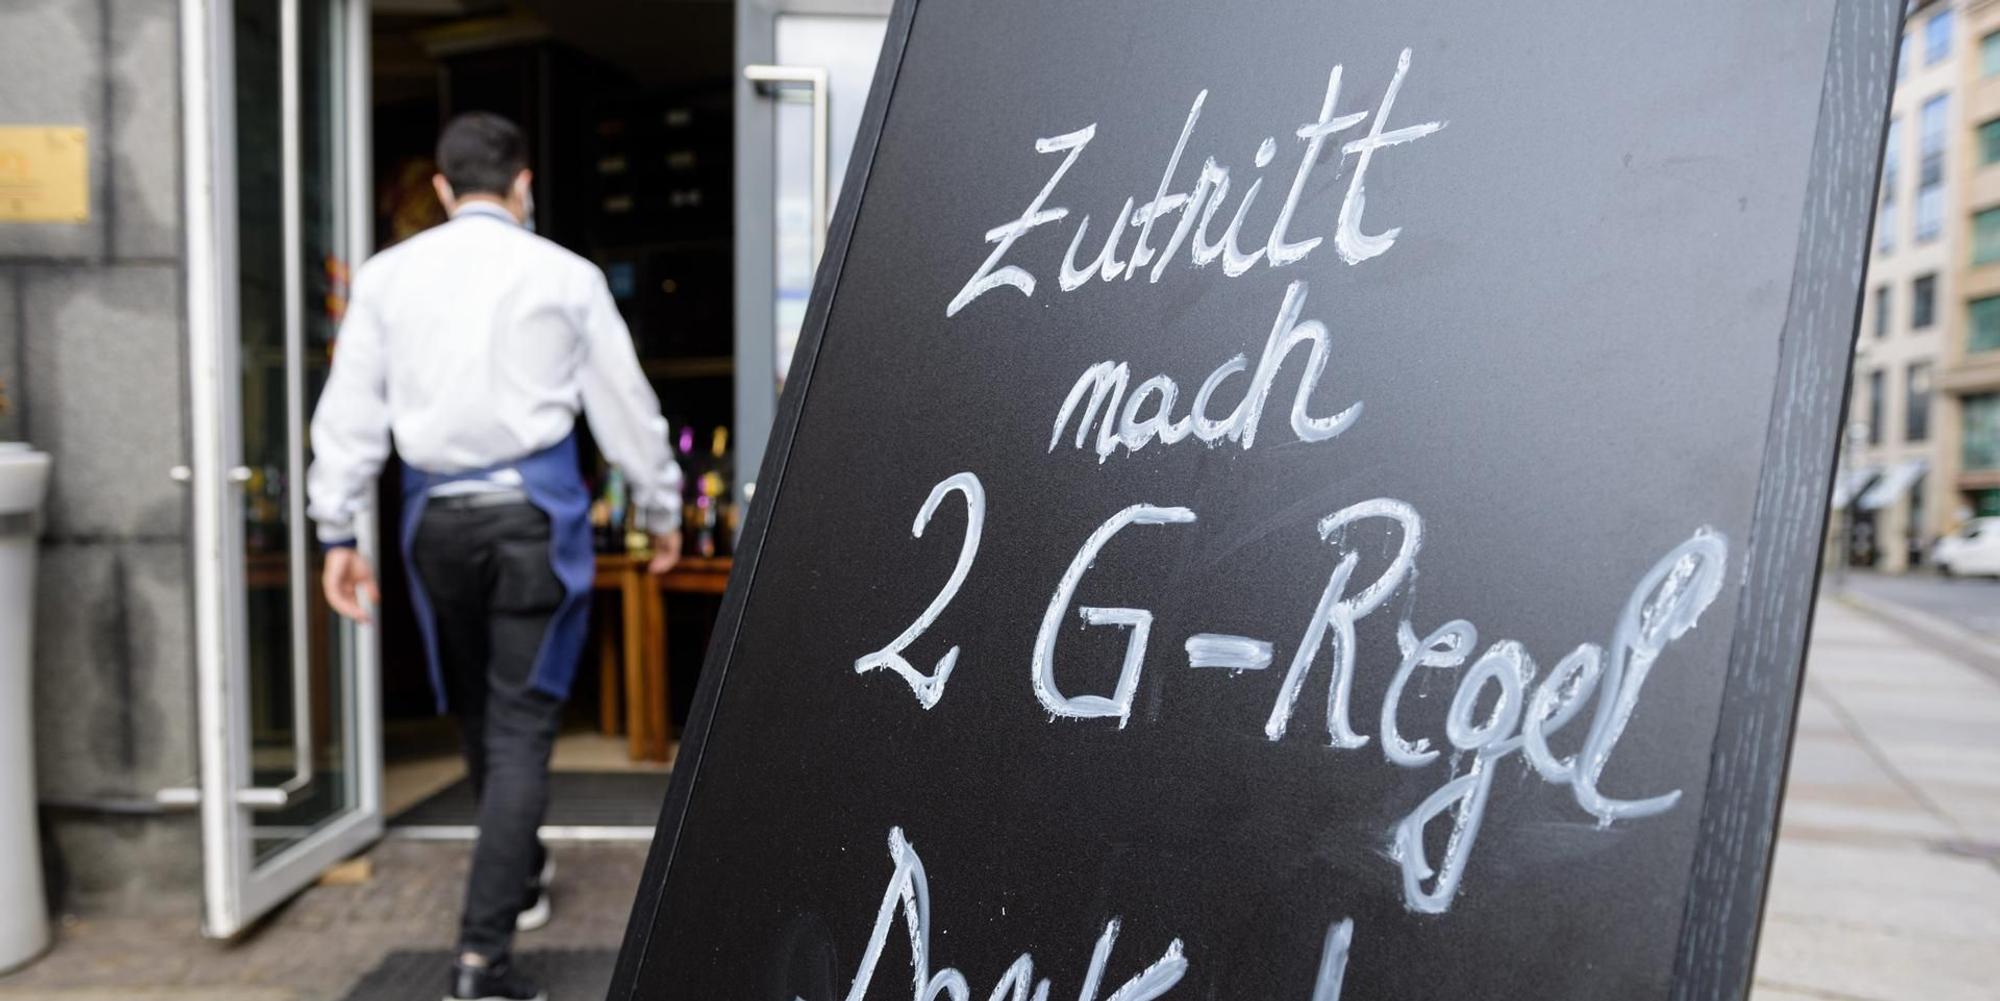 Zutritt
nach
2 G-Regel